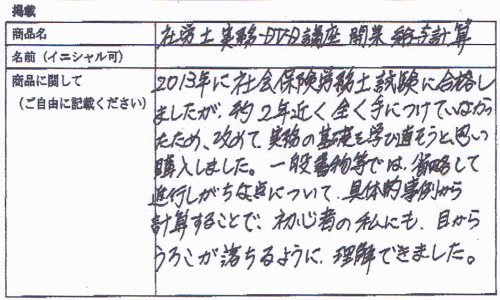 掲載
商品名
社労士実務DVD講座 開業 給与計算
名前(イニシャル可)
商品に関して
(ご自由に記載ください)
2013年に社会保険労務士試験に合格し
ましたが、約2年近く全く手につけていなかっ
たため、改めて実務の基礎を学び直そうと思い
購入しました。一般書物等では、省略して
進行しがちな点について、具体的事例から
計算することで、初心者の私にも、目から
うろこが落ちるように、理解できました。